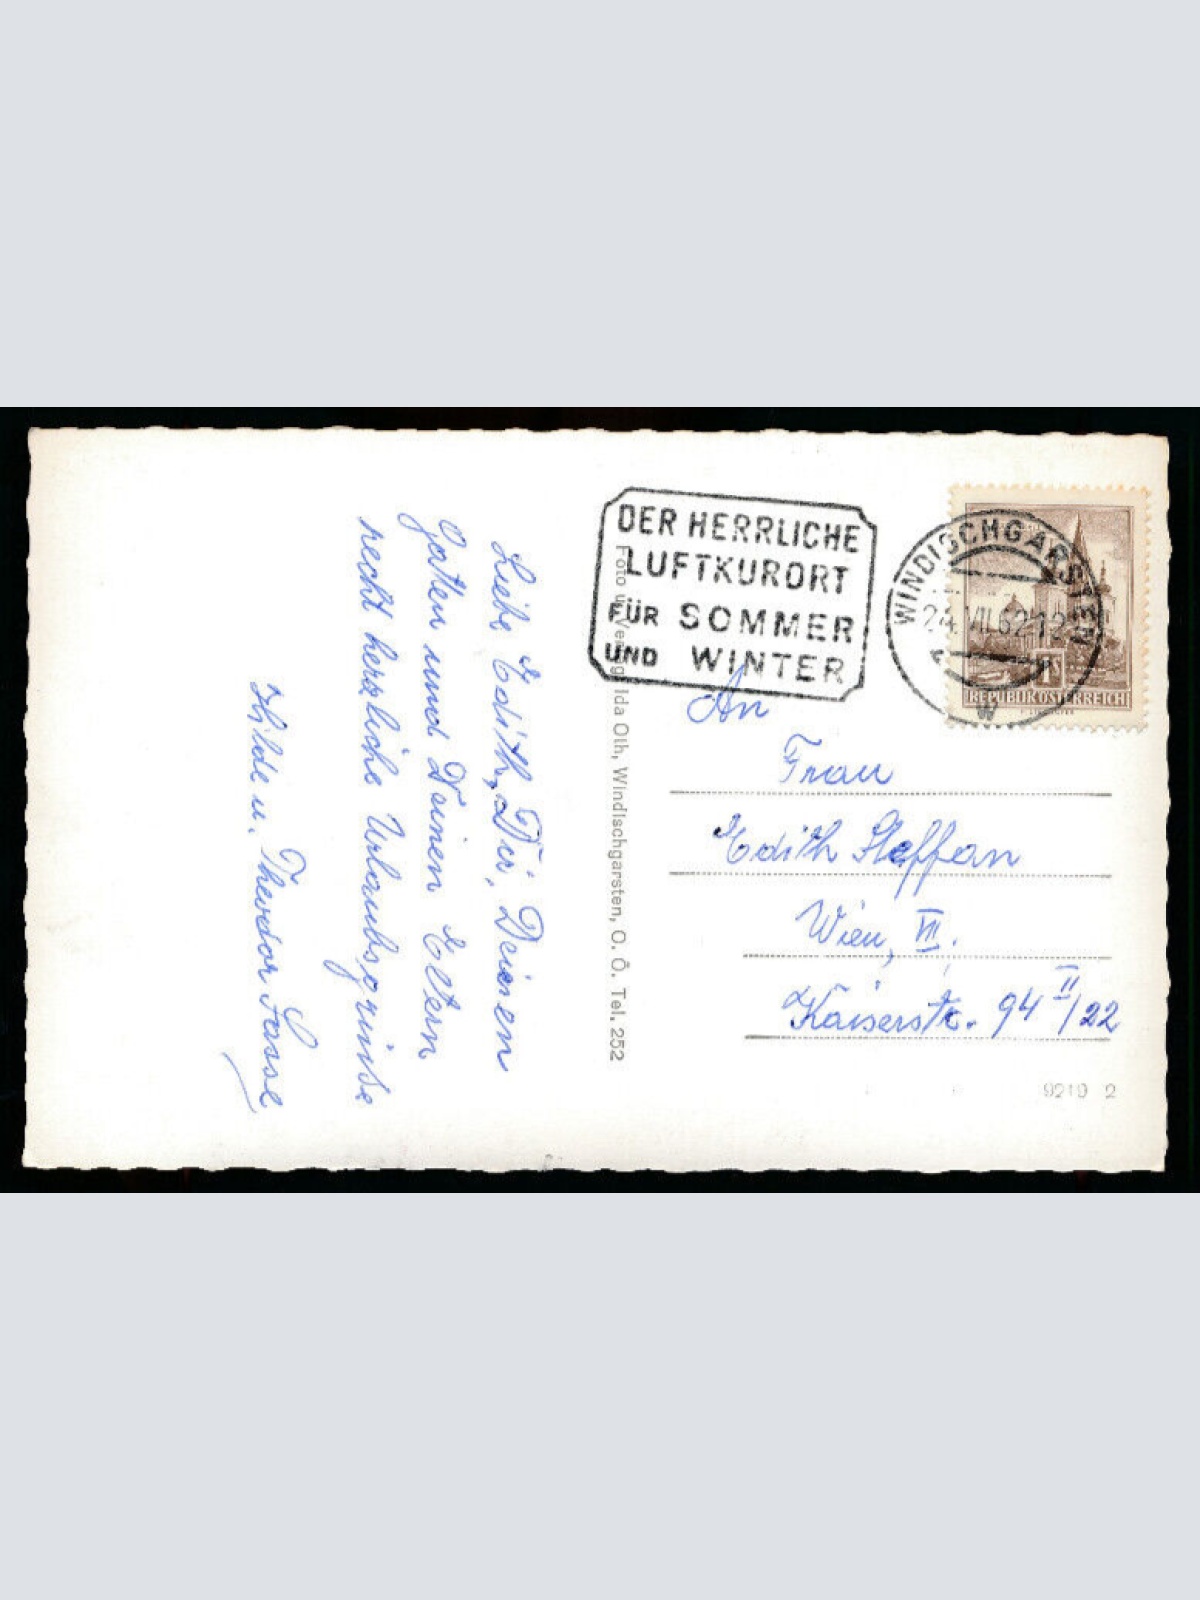 Liebe Edith, Dir, Deinen
Gatten und Deinen Eltern
recht herzliche Urlaubsgrüße
Hilde u. Theodor Sasse
Foto u. Verlag Ida Olh, Windischgarsten, O. Ö. Tel. 252
DER HERRLICHE
LUFTKURORT
FÜR SOMMER
UND WINTER
WINDISCHGARSTEN
24.VII.62 12
w
1 S
REPUBLIK ÖSTERREICH
An
Frau
Edith Steffan
Wien, VII.
Kaiserstr. 94 II/22
9219 2